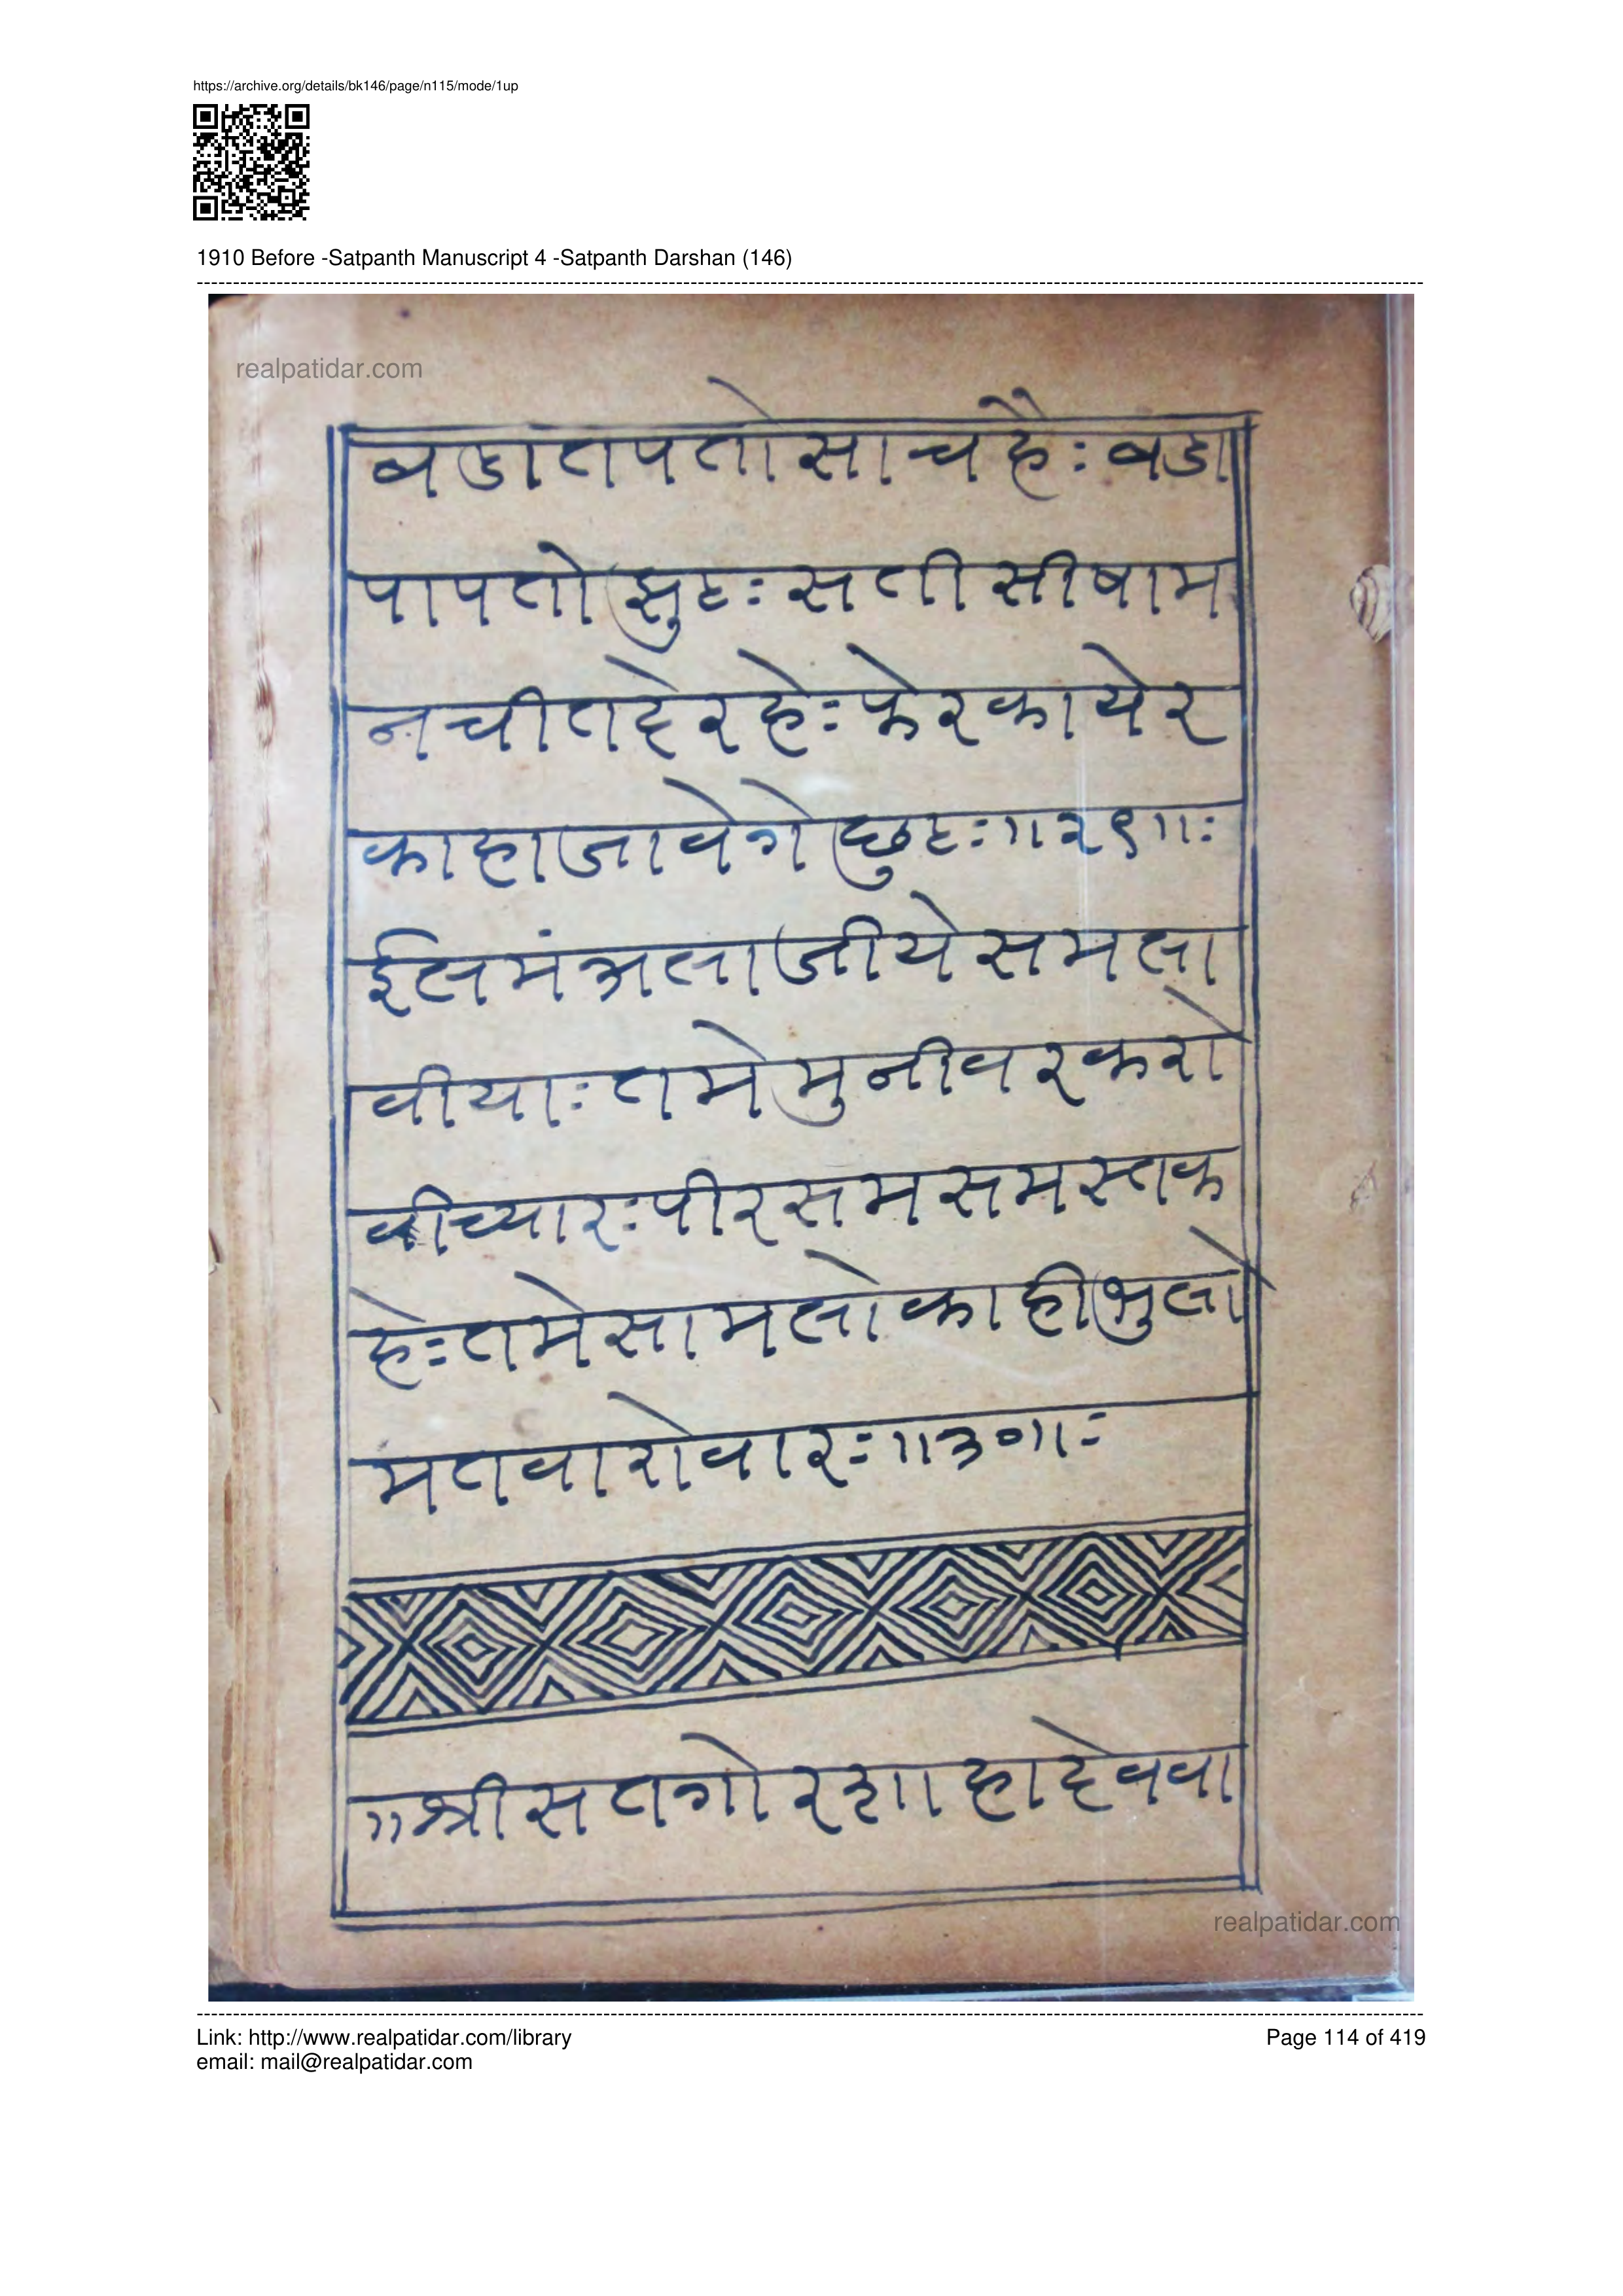 https://archive.org/details/bk146/page/n115/mode/1up
1910 Before -Satpanth Manuscript 4 -Satpanth Darshan (146)
realpatidar.com
बडातपतोसाचहैः बडा
पापतो झुटः सतीसीषाम
नचीतदेरहेः फेरकायेर
काहाजावेगेछुटः॥२९॥ः
ईलमंत्रलाजीयेसमला
वीयाः तमेमुनीवरकरो
वीच्यारः पीरसमसमस्तक
हेः तमेसामलोकाहीभुलो
मतवारोवारः॥३०॥ः
॥श्रीसतगोरशाहादेववा
realpatidar.com
Link: http://www.realpatidar.com/library
Page 114 of 419
email: mail@realpatidar.com